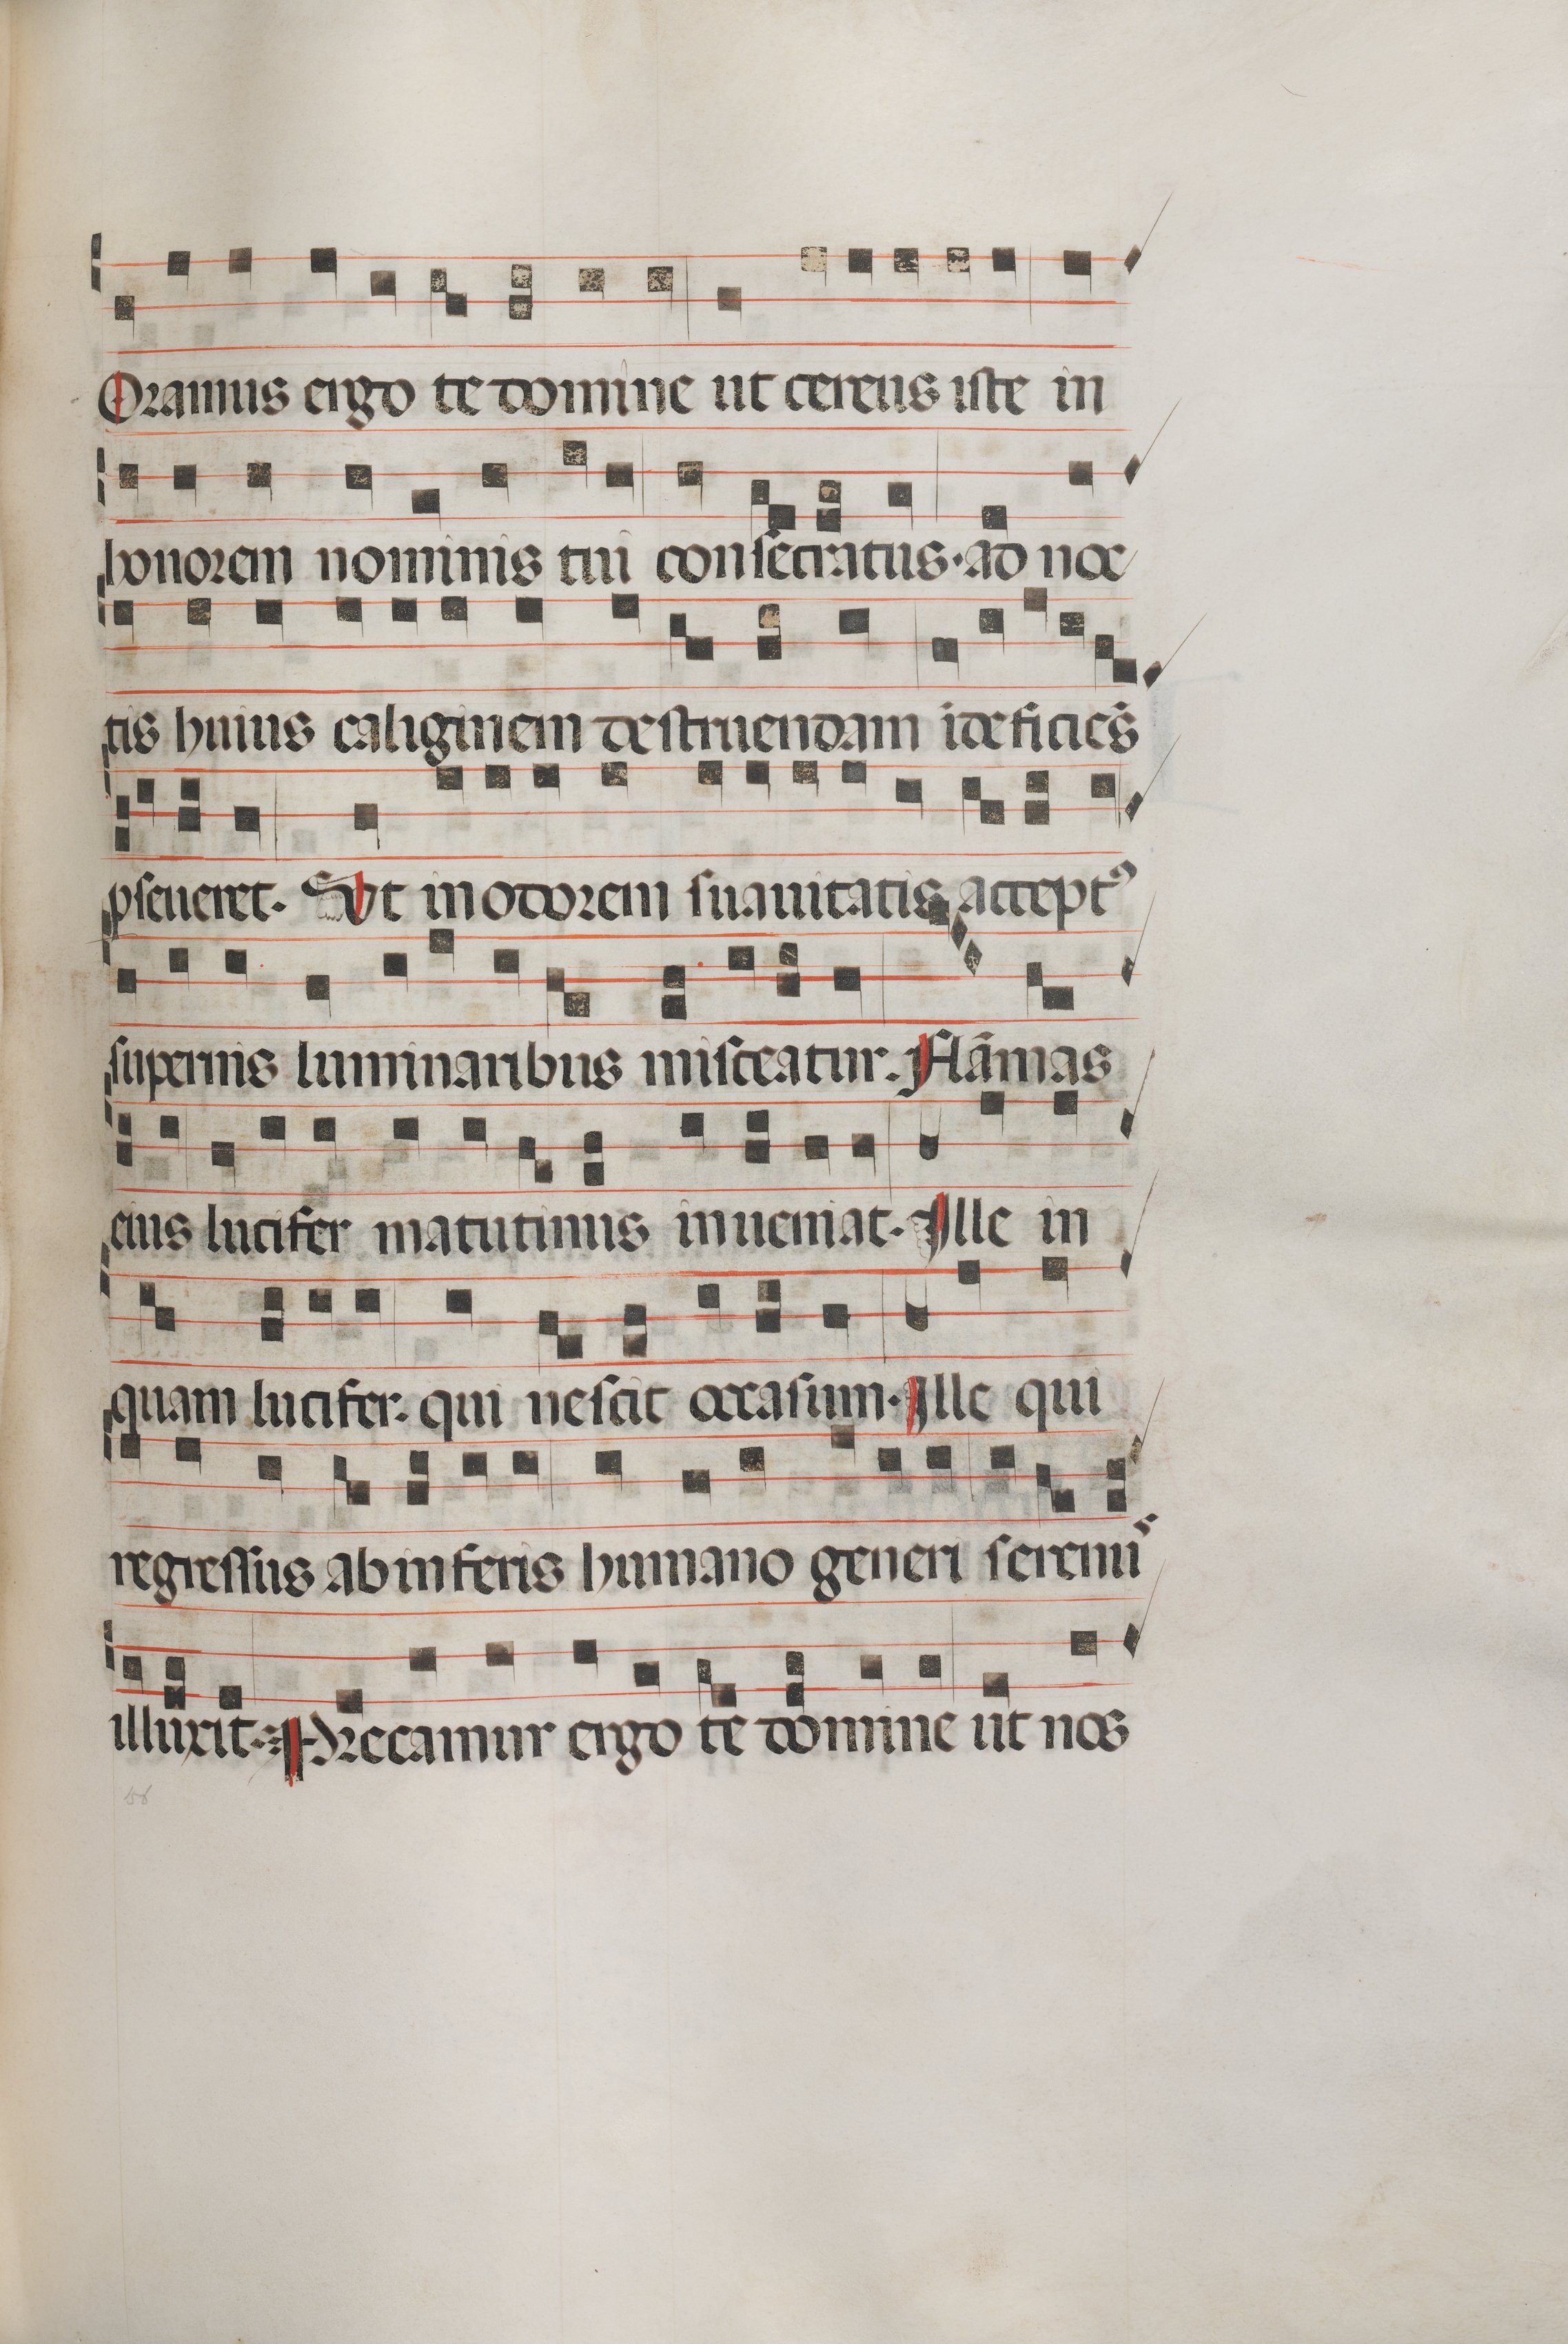 Oramus ergo te domine ut cereus iste in
honorem nominis tui consecratus· ad noc
tis huius caliginem destruendam ideficiēs
pseueret. Ut in odorem suauitatis accept⁹
supernis luminaribus misceatur. Flāmas
eius lucifer matutinus inueniat. Ille in
quam lucifer. qui nescit occasum. Ille qui
regressus ab inferis humano generi serenus
illuxit. Precamur ergo te domine ut nos
56